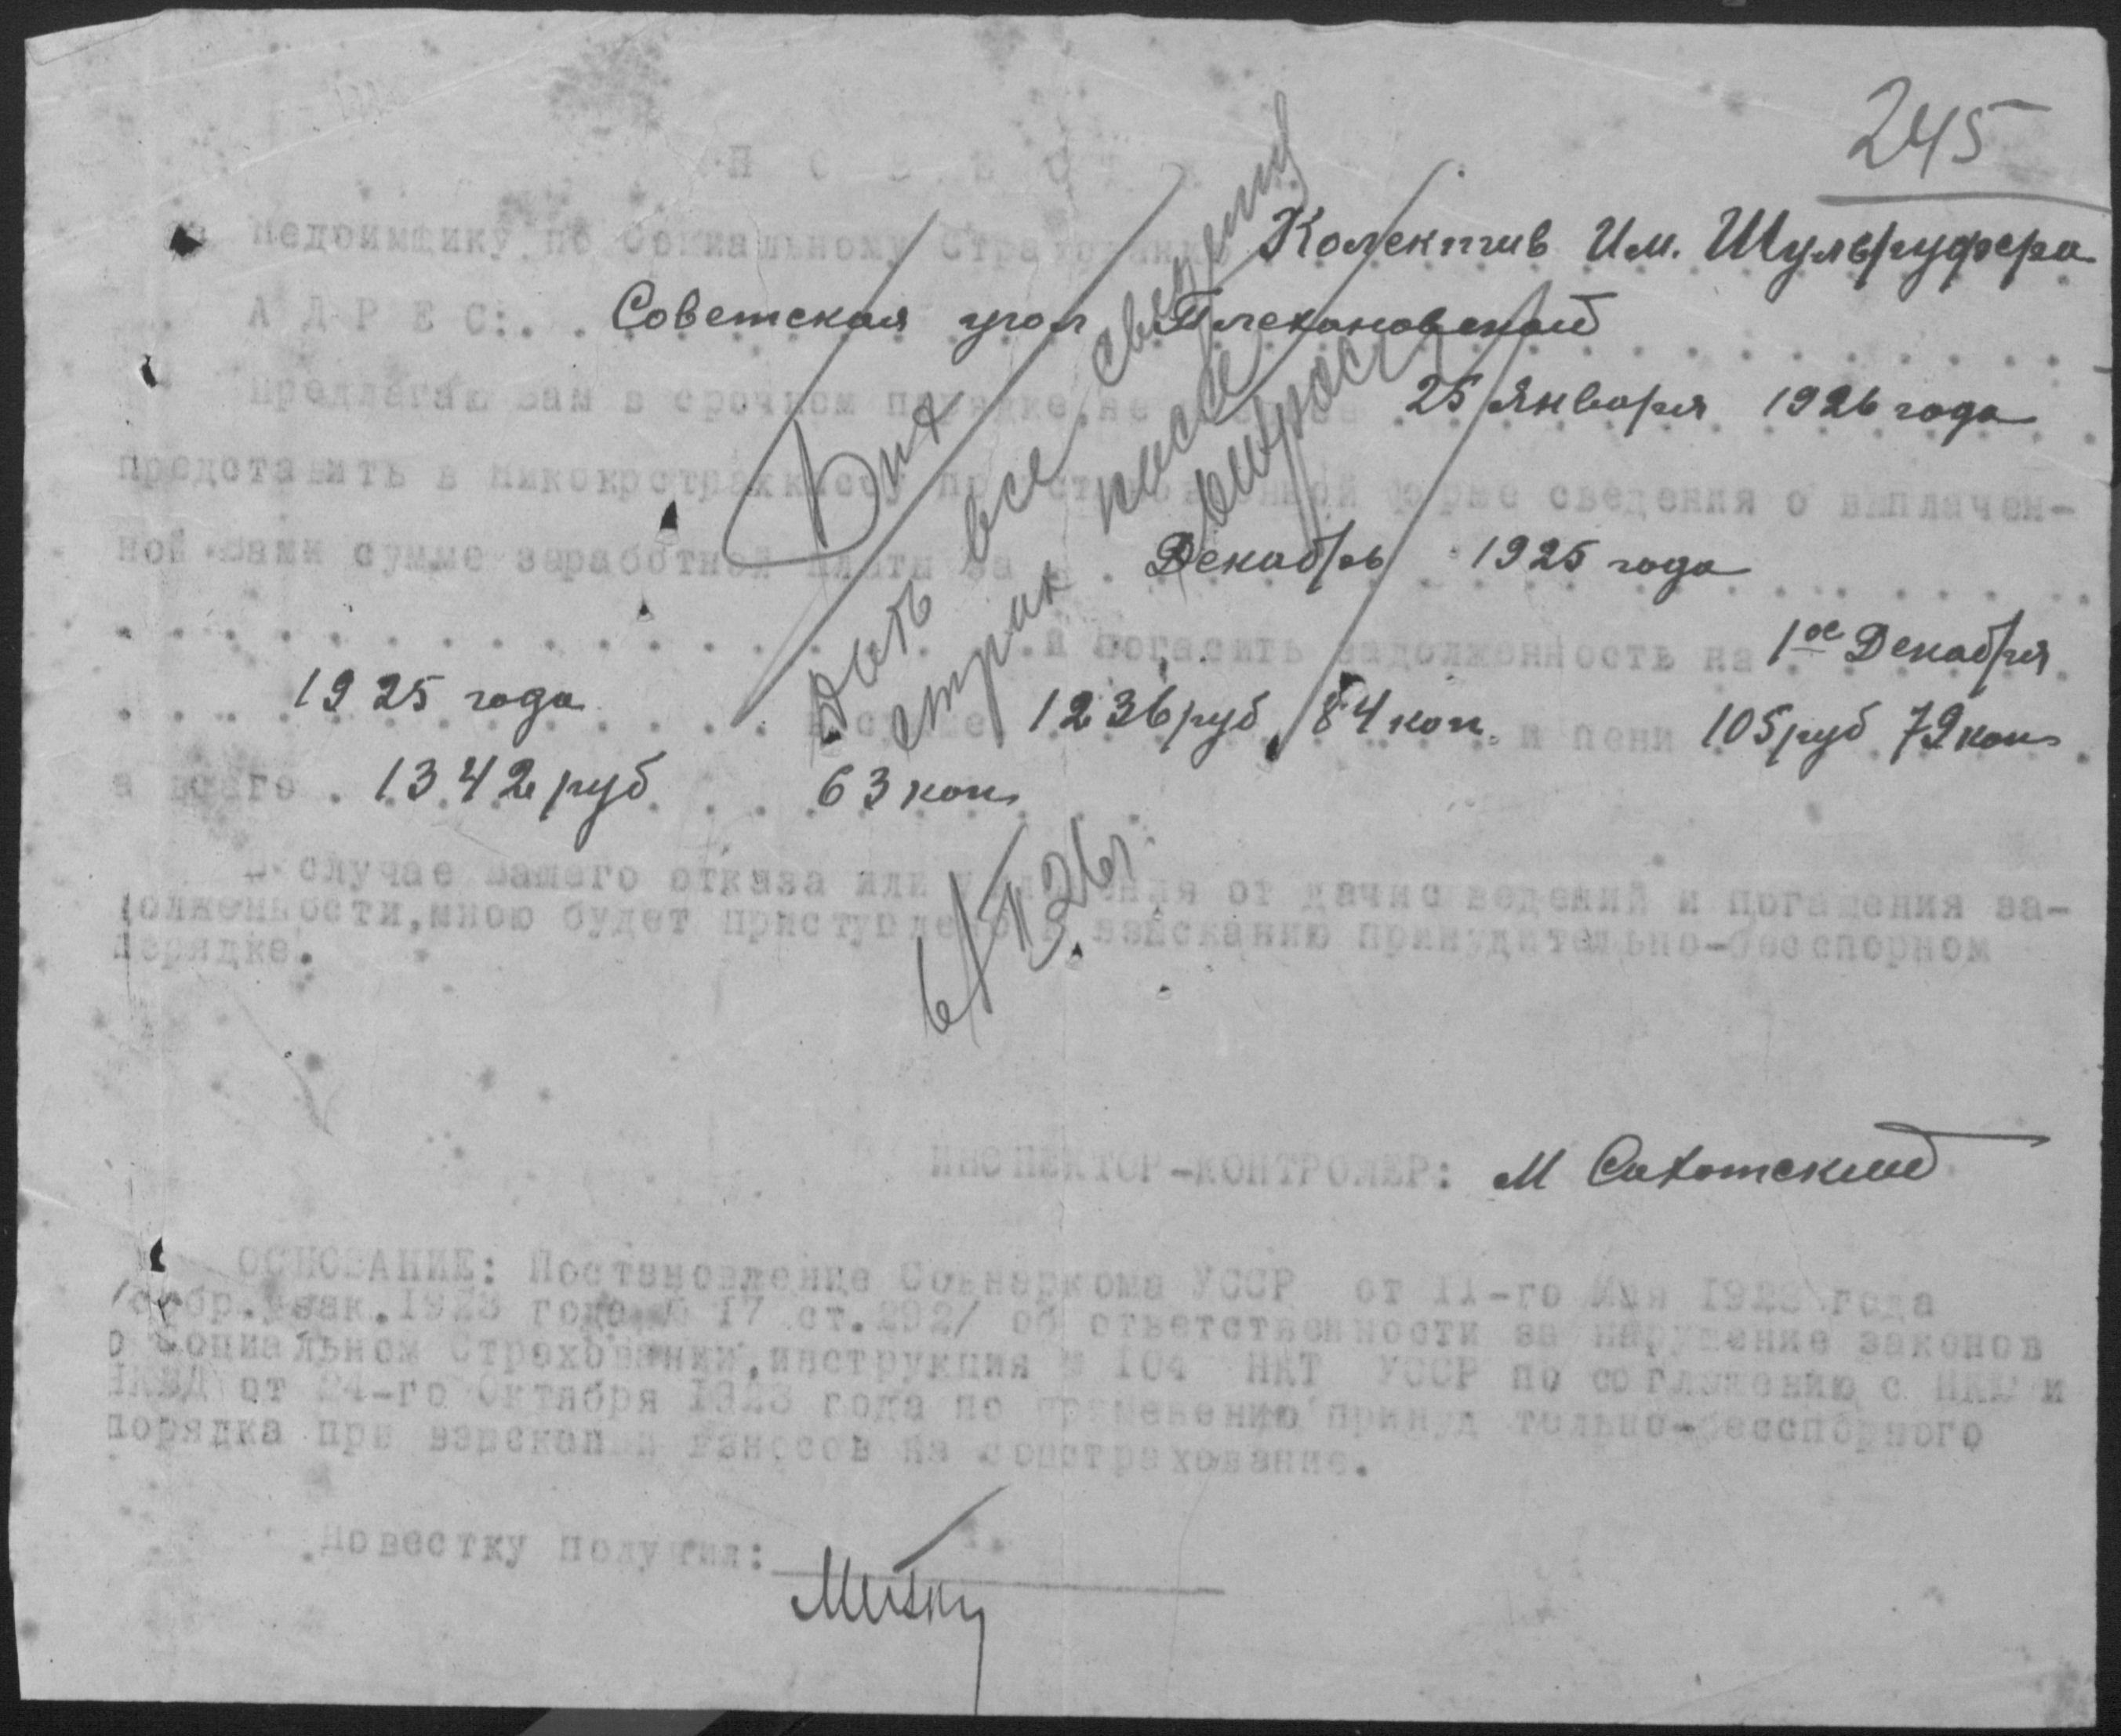 245
П О В Е С Т К А
Недоимщику по Социальному Страхованию Колектив Им.
А Д Р Е С: Советская угол Плехановской
Предлагаю вам в срочном порядке, не 25 Января 1926 года
представить в Никокрстрахкассу по установленной форме сведения о выплачен-
ной вами сумме заработной платы за Декабрь 1925 года
и погасить задолженность на 1ое Декабря
1925 года в сумме 1236 руб 84 коп. и пени 105 руб 79 коп
а всего 1342 руб 63 коп
Дать все сведения
страх кассе
В случае вашего отказа или уклонения от дачи сведений и погашения за-
долженности, мною будет приступлено к взысканию принудительно-бесспорном
порядке.
ИНСПЕКТОР-КОНТРОЛЕР: М
ОСНОВАНИЕ: Постановление Совнаркома УССР от 11-го Мая 1923 года
/собр.узак.1923 года № 17 ст.292/ об ответственности за нарушение законов
о Социальном Страховании, инструкция № 104 НКТ УССР по соглашению с НКЮ и
НКВД от 24-го Октября 1923 года по применению принудтельно-бесспорного
порядка при взыскании взносов на соцстрахование.
Повестку получил: